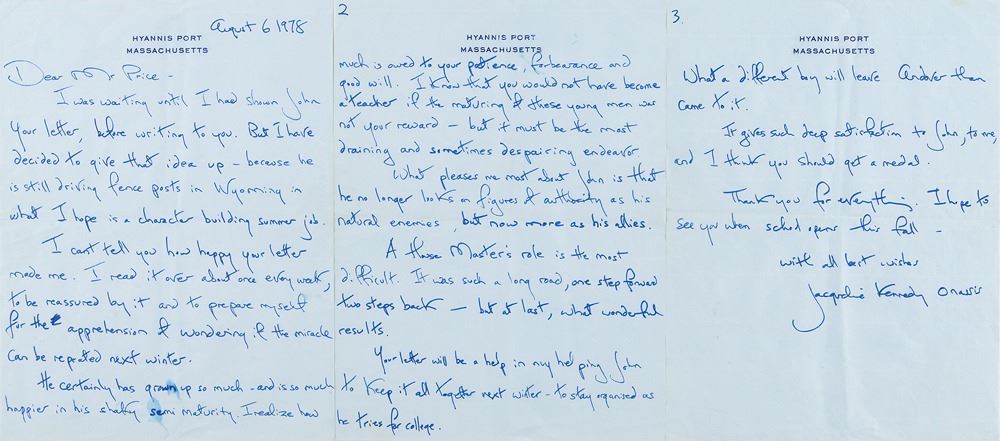 August 6 1978
HYANNIS PORT
MASSACHUSETTS
Dear Mr Price -
I was waiting until I had shown John
your letter, before writing to you. But I have
decided to give that idea up - because he
is still driving fence posts in Wyoming in
what I hope is a character building summer job.
I can't tell you how happy your letter
made me. I read it over about once every week,
to be reassured by it and to prepare myself
for the apprehension of wondering if the miracle
can be repeated next winter.
He certainly has grown up so much - and is so much
happier in his shaky semi maturity. I realize how
2
HYANNIS PORT
MASSACHUSETTS
much is owed to your patience, forbearance and
good will. I know that you would not have become
a teacher if the maturing of these young men was
not your reward - but it must be the most
draining and sometimes despairing endeavor.
What pleases me most about John is that
he no longer looks on figures of authority as his
natural enemies, but now more as his allies.
A House Master's role is the most
difficult. It was such a long road, one step forward
two steps back - but at last, what wonderful
results.
Your letter will be a help in my helping John
to keep it all together next winter - to stay organised as
he tries for college.
3.
HYANNIS PORT
MASSACHUSETTS
What a different boy will leave Andover than
came to it.
It gives such deep satisfaction to John, to me,
and I think you should get a medal.
Thank you for everything. I hope to
see you when school opens this fall -
with all best wishes
Jacqueline Kennedy Onassis